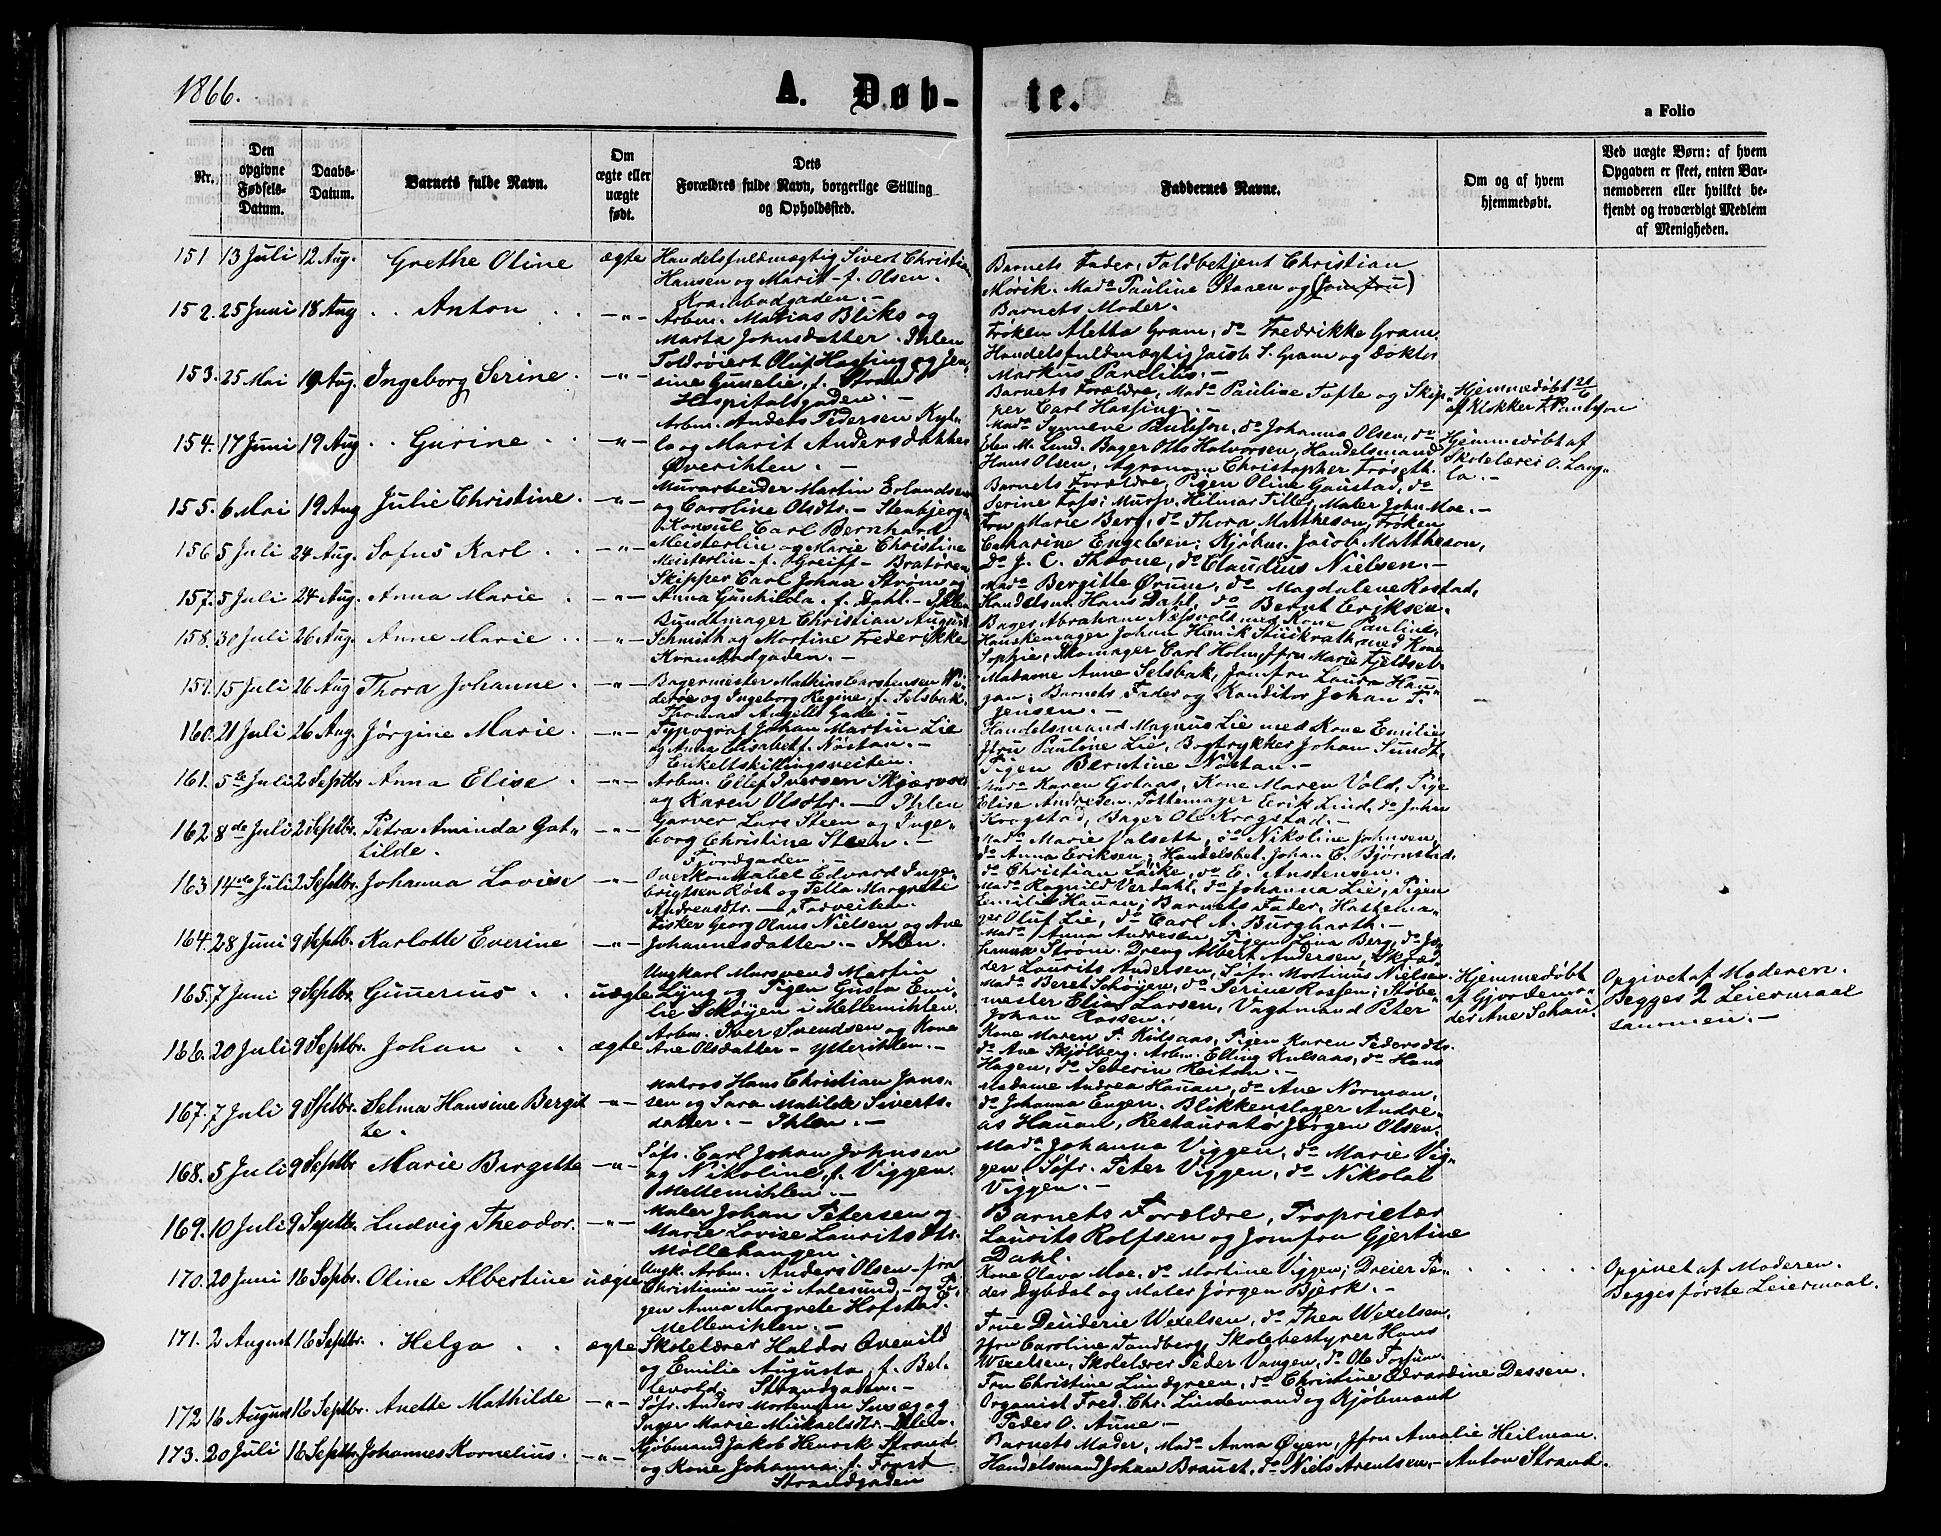 1866.
A. Døb-
te.
a Folio
Nr.
Den opgivne Fødsels-Datum.
Daabs-Datum.
Barnets fulde Navn.
Om ægte eller uægte født.
Dets Forældres fulde Navn, borgerlige Stilling og Opholdssted.
Faddernes Navne.
Om og af hvem hjemmedøbt.
Ved uægte Børn: af hvem Opgaven er skeet, enten Barnemoderen eller hvilket bekjendt og troværdigt Medlem af Menigheden.
151 13 Juli 12 Aug. Grethe Oline ægte
Handelsfuldmægtig Sivert Christian
Hansen og Marit f. Olsen.
Krambodgaden. –
Barnets Fader, Toldbetjent Christian
Mørik. Mad. Pauline Staren og (Jomfru)
Barnets Moder.
152. 25 Juni 18 Aug . . Anton . . –"–
Arbm. Matias Bliks og
Marta Johnsdatter. Ihlen
Frøken Aletta Gram, do Fredrikke Gram.
Handelsfuldmægtig Jacob S. Gram og Doktor
Markus
153. 25 Mai 19 Aug. Ingeborg Serine. –"–
Toldroiert Oluf Hassing og Jen-
sine Gunelie, f. Strand
Hospitalsgaden. –
Barnets Forældre, Mad. Pauline Tofte og Skip-
per Carl Hassing. –
Hjemmedøbt 21/6
af Klokker Paulson
154. 17 Juni 19 Aug . . Gurine . . –"–
Arbm. Anders Pedersen Kyl-
lo og Marit Andersdatter
Øverihlen. –
Mad. Synneve Paulson, do Johanna Olsen, do
Elen M. Lund. Bager Otto Halvorsen, Handelsmand
Hans Olsen, Agronom Christopher Frøseth.
Hjemmedøbt af
Skolelærer O. Lang-
lo. –
155. 6 Mai 19 Aug Julie Christine. –"–
Murarbeider Martin Erlandsen
og Caroline Olsdtr. – Stenbjerg
Barnets Forældre, Pigen Oline Gaustad, do
Serine Foss; Mursv. Hilmar Tiller, Maler John Moe. –
156 5 Juli 24 Aug. Sofus Karl . . –"–
Konsul Carl Bernhard
Meisterlin og Marie Christine
Meisterlin – f. Greiff – Bratøren
Fru Marie Berg, do Thora Mattheson, Frøken
Catharine Engelsen; Kjøbm. Jacob Mattheson,
do J. C. Thorne, do Claudius Nielsen. –
157. 5 Juli 24 Aug. Anna Marie . –"–
Skipper Carl Johan Strøm og
Anna Gunhilda. f. Dahl. – Ihlen
Mad. Bergitte Ørum, do Magdalene Rostad,
Handelsm. Hans Dahl, do Bernt Eriksen.
158. 30 Juli 26 Aug. Anne Marie . . –"–
Bundtmager Christian August
Schmith og Martine Frederikke
Krambodgaden. –
Bager Abraham med Kone Pauline,
Hanskemager Johan Henrik med Kone
Sophie, Skomager Carl Holm, Jfru Marie Fjeldseth
159. 15 Juli 26 Aug Thora Johanne. –"–
Bagermester Mathias Carstensen Wi-
derøe og Ingeborg Regine, f. Selsbak.
Thomas Angells Gade. –
Madame Anne Selsbak, Jomfru Laura Hau-
gan; Barnets Fader og Konditor Johan F.
Jensen. –
160. 21 Juli 26 Aug. Jørgine Marie. –"–
Typograf Johan Martin Lie
og Anna Elisabet f. Nøstan. –
Enkeltskillingsveiten.
Handelsmand Magnus Lie med Kone Emilie
Jfru Pauline Lie, Bogtrykker Johan Sundt,
Pigen Berntine Nøstan. –
161. 5te Juli 2 Septbr Anna Elise . –"–
Arbm. Ellef Iversen Skjærvold
og Karen Olsdtr. – Ihlen
Mad. Karen Gotaas, Kone Maren Vold, Pige
Elise Andresen. Pottemager Erik Lind, do Johan
Krogstad, Bager Ole Krogstad. –
162 8de Juli 2 Septbr. Petra Aminda Gat-
tilde. –"–
Garver Lars Steen og Inge-
borg Christine Steen. –
Fjordgaden. –
Mad. Marie Valseth, do Nikoline Johnsen,
do Anna Eriksen; Handelsbet. Johan C. Bjørnstad,
do Christian Løcke, do E. Anstensen.
163 14de Juli 2 Septbr. Johanna Lovise –"–
Overkonstabel Edvard Inge-
brigtsen Røst og Tella Margrete
Andreasdtr. – Fadveiten.
Mad. Ragnild Verdahl, do Johanna Lie, Pigen
Emilie Hauan; Barnets Fader, Hattema-
ger Oluf Lie, do Carl A. Burghardt. –
164. 28 Juni 9 Septb. Karlotte Everine –"–
Fisker Georg Olaus Nielsen og Ane
Johannesdatter. – Ihlen.
Mad. Anna Andresen, Pigen Lina Berg, do Jo-
hanna Strøm. Dreng Albert Andersen, Skræd-
der Laurits Andersen, Søfr. Mortinus Nielsen
165. 7 Juni 9 Septb. Gunerius . . uægte
Ungkarl Mursvend Martin
Lyng og Pigen Gusta Emi-
lie Schøyen i Mellemihlen.
Mad. Beret Schøyen, do Serine Rossen; Støbe-
mester Elias Larsen, Vagtmand Peter
Johan Rossen. –
Hjemmedøbt
af Gjordemo-
der Ane Schau.
Opgivet af Moderen.
Begges 2 Leiermaal
sammen. –
166. 20 Juli 9 Septbr. Johan . . ægte
Arbm. Iver Svendsen og Kone
Ane Olsdatter – Ytterihlen. –
Kone Maren P. Kulsaas, Pigen Karen Pedersdtr.
do Ane Skjølberg. Arbm. Elling Kulsaas, do Hans
Hagen, do Severin Reitan. –
167. 7 Juli 9 Septbr. Selma Hansine Bergit
te. –"–
Matros Hans Christian Jans-
sen og Sara Matilde Siverts-
datter. – Ihlen. –
Madame Andrea Hauan, do Ane Norman,
do Johanna Engen. Blikkenslager Andre-
as Hauan, Restauratør Jørgen Olsen.
168. 5 Juli 9 Septbr Marie Birgitte –"–
Søfr. Carl Johan Johnsen
og Nikoline, f. Viggen.
Mellemihlen. –
Mad. Johanna Viggen, do Marie Vig-
gen, Søfr. Peter Viggen, do Nikolai
Viggen. –
169. 10 Juli 9 Septbr. Ludvig Theodor. –"–
Maler Johan Petersen og
Marie Lovise Laurits Dtr.
Møllebangen.
Barnets Forældre, Proprietær
Laurits Rolfsen og Jomfru Gjertine
Dahl.
170. 20 Juni 16 Septbr. Oline Albertine uægte
Ungk. Arbm. Anders Olsen – fra
Christiania – nu i Aalesund, – og Pi-
gen Anna Margrete Hofstad.
Mellemihlen. –
Kone Olava Moe, do Martine Viggen; Dreier Pe-
der Dybdal og Maler Jørgen Bjerk. –
Opgivet af Moderen.
Begges første Leiermaal.
171. 2 August 16 Septbr. . Helga . . ægte
Skolelærer Haldor Qvenild
og Emilie Augusta, f. Bel-
levold. Strandgaden. –
Frue Deuderie Wexelsen, do Thea Wexelsen,
Jfru Caroline Sandberg, Skolebestyrer Hans
Wexelsen, Skolelærer Peder Vangen, do Ole Forsum
172 16 August 16 Septbr. Anette Mathilde –"–
Søfr. Anders Mortensen og
Inger Marie Mickaelsdtr. – Ihlen.
Fru Christine Lundgreen, do Christine Edvardine Dessen.
Organist Fred. Chr. Lindeman og Kjøbmand
Peder O. Aune –
173. 20 Juli 16 Septbr. Johannes Kornelius. –"–
Kjøbmand Jakob Henrik Strand
og Kone Johanna f. Frost
Strandgaden
Barnets Moder, Mad. Anna Øyen, Jfru Amalie Heilman.
Handelsmand Johan Brauet, do Niels Arentsen, – Anton Strand.